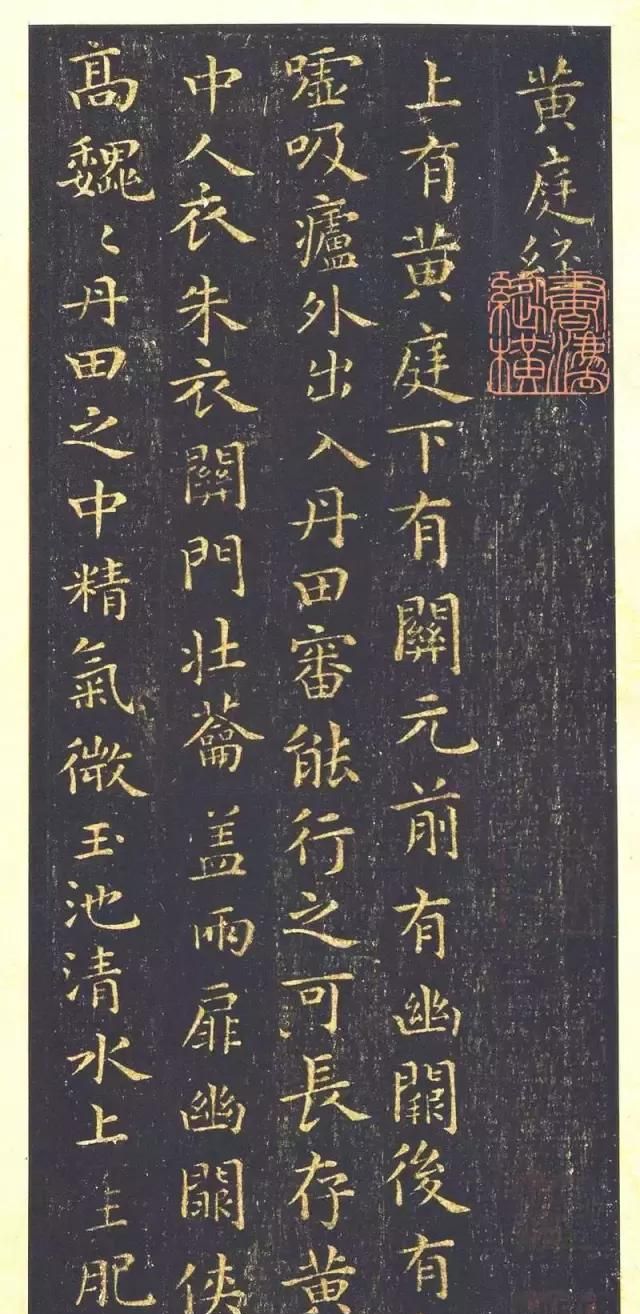 黄庭經
上有黄庭下有關元前有幽闕後有
嘘吸廬外出入丹田審能行之可長存黄
中人衣朱衣關門壯蘥盖兩扉幽闕俠
高巍〻丹田之中精氣微玉池清水上生肥